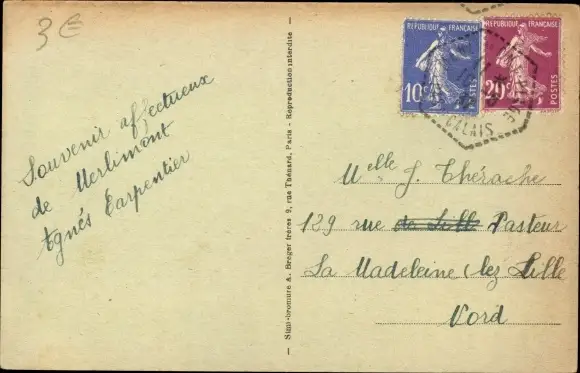 3 €
Souvenir affectueux
de Merlimont
Agnés Carpentier
— Simi-bromure A. Breger frères 9, rue Thénard, Paris - Reproduction interdite —
REPUBLIQUE FRANÇAISE
10c
POSTES
REPUBLIQUE FRANÇAISE
20c
POSTES
CALAIS
Melle J. Thérache
129 rue de Lille Pasteur
La Madeleine (lez Lille
Nord